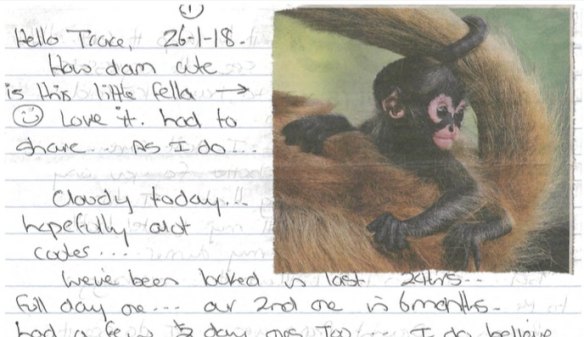 Hello Trace, 26-1-18.
How dam cute
is this little fella →
☺ Love it. had to
share... As I do...
Cloudy today...
hopefully alot
cooler....
We've been locked in last 24hrs..
Full day one... our 2nd one in 6months.
had a few ½ day ones Too.... I do believe